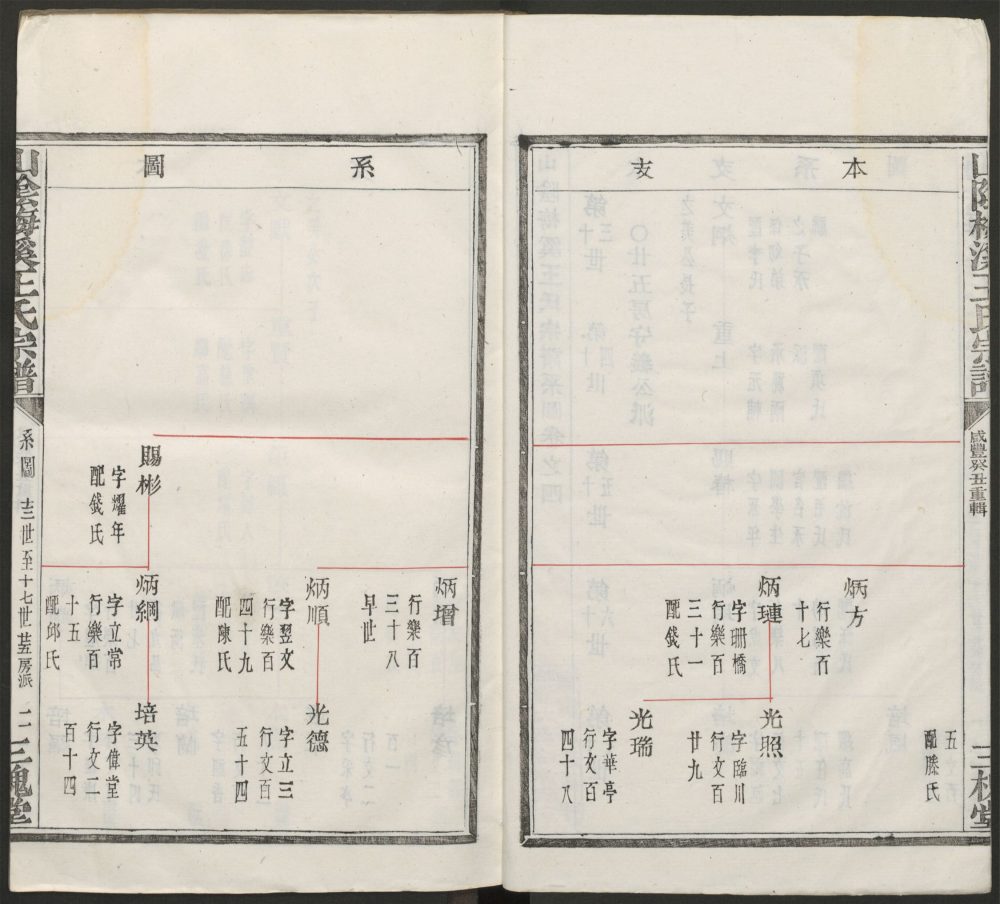 山陰梅溪王氏宗譜
咸豐癸丑重輯
三槐堂
本支
五
配滕氏
炳方
行樂百
十七
炳璉
字珊橋
行樂百
三十一
配錢氏
光照
字臨川
行文百
廿九
光瑞
字華亭
行文百
四十八
系圖
炳增
行樂百
三十八
早世
炳順
字翌文
行樂百
四十九
配陳氏
光德
字立三
行文百
五十四
賜彬
字燿年
配錢氏
炳綱
字立常
行樂百
十五
配邱氏
培英
字偉堂
行文二
百十四
山陰梅溪王氏宗譜
系圖
世至十七世
房派
三槐堂